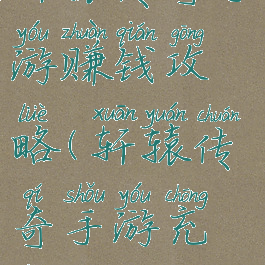 yóu zhuàn qián gōng
游赚钱攻
lüè xuān yuán chuán
略(轩辕传
qí shǒu yóu chōng
奇手游充